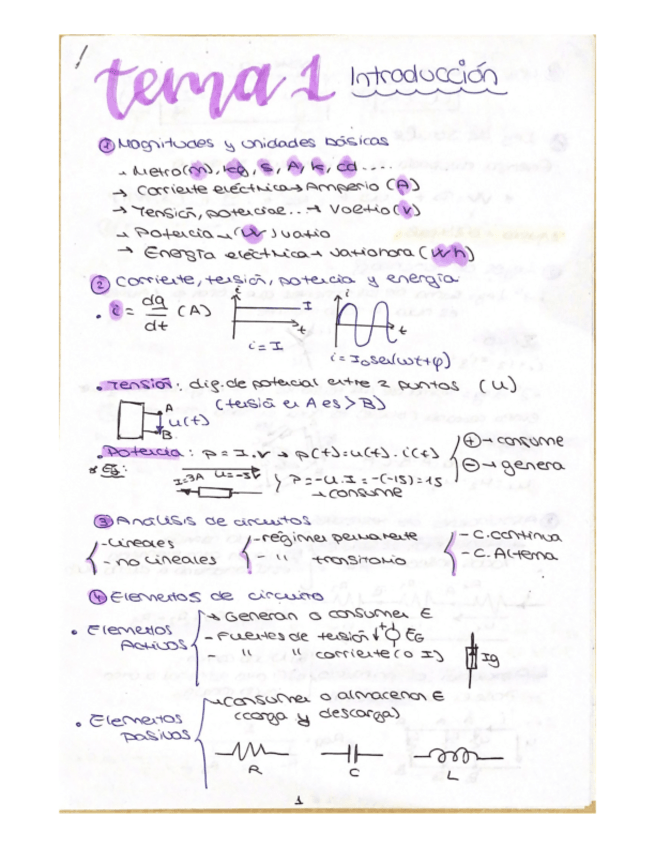 tema 1 Introducción
① Magnitudes y unidades básicas
→ Metro(m), kg, s, A, k, cd....
→ Corriente eléctrica → Amperio (A)
→ Tensión, potencial... → Voltio (V)
→ Potencia → (W) vatio
→ Energía eléctrica → vatiohora (Wh)
② Corriente, tensión, potencia y energía
• i = dq/dt (A)
i
I
t
i = I
i
t
i = I₀sen(ωt+φ)
• Tensión: dif. de potencial entre 2 puntos (U)
(tensión en A es > B)
A
u(t)
B
• Potencia: p = I.V → p(t)=u(t).i(t)
⊕ → consume
⊖ → genera
* Eg:
I=3A U=-5V
P=-U.I=-(-15)=15
→ consume
③ Análisis de circuitos
-Lineales
-no lineales
-régimen permanente
- " transitorio
-C.continua
-C.Alterna
④ Elementos de circuito
• Elementos Activos
→ Generan o consumen E
-Fuentes de tensión EG
- " " corriente (o I)
Ig
• Elementos pasivos
→ consumen o almacenan E
(carga y descarga)
R
C
L
1